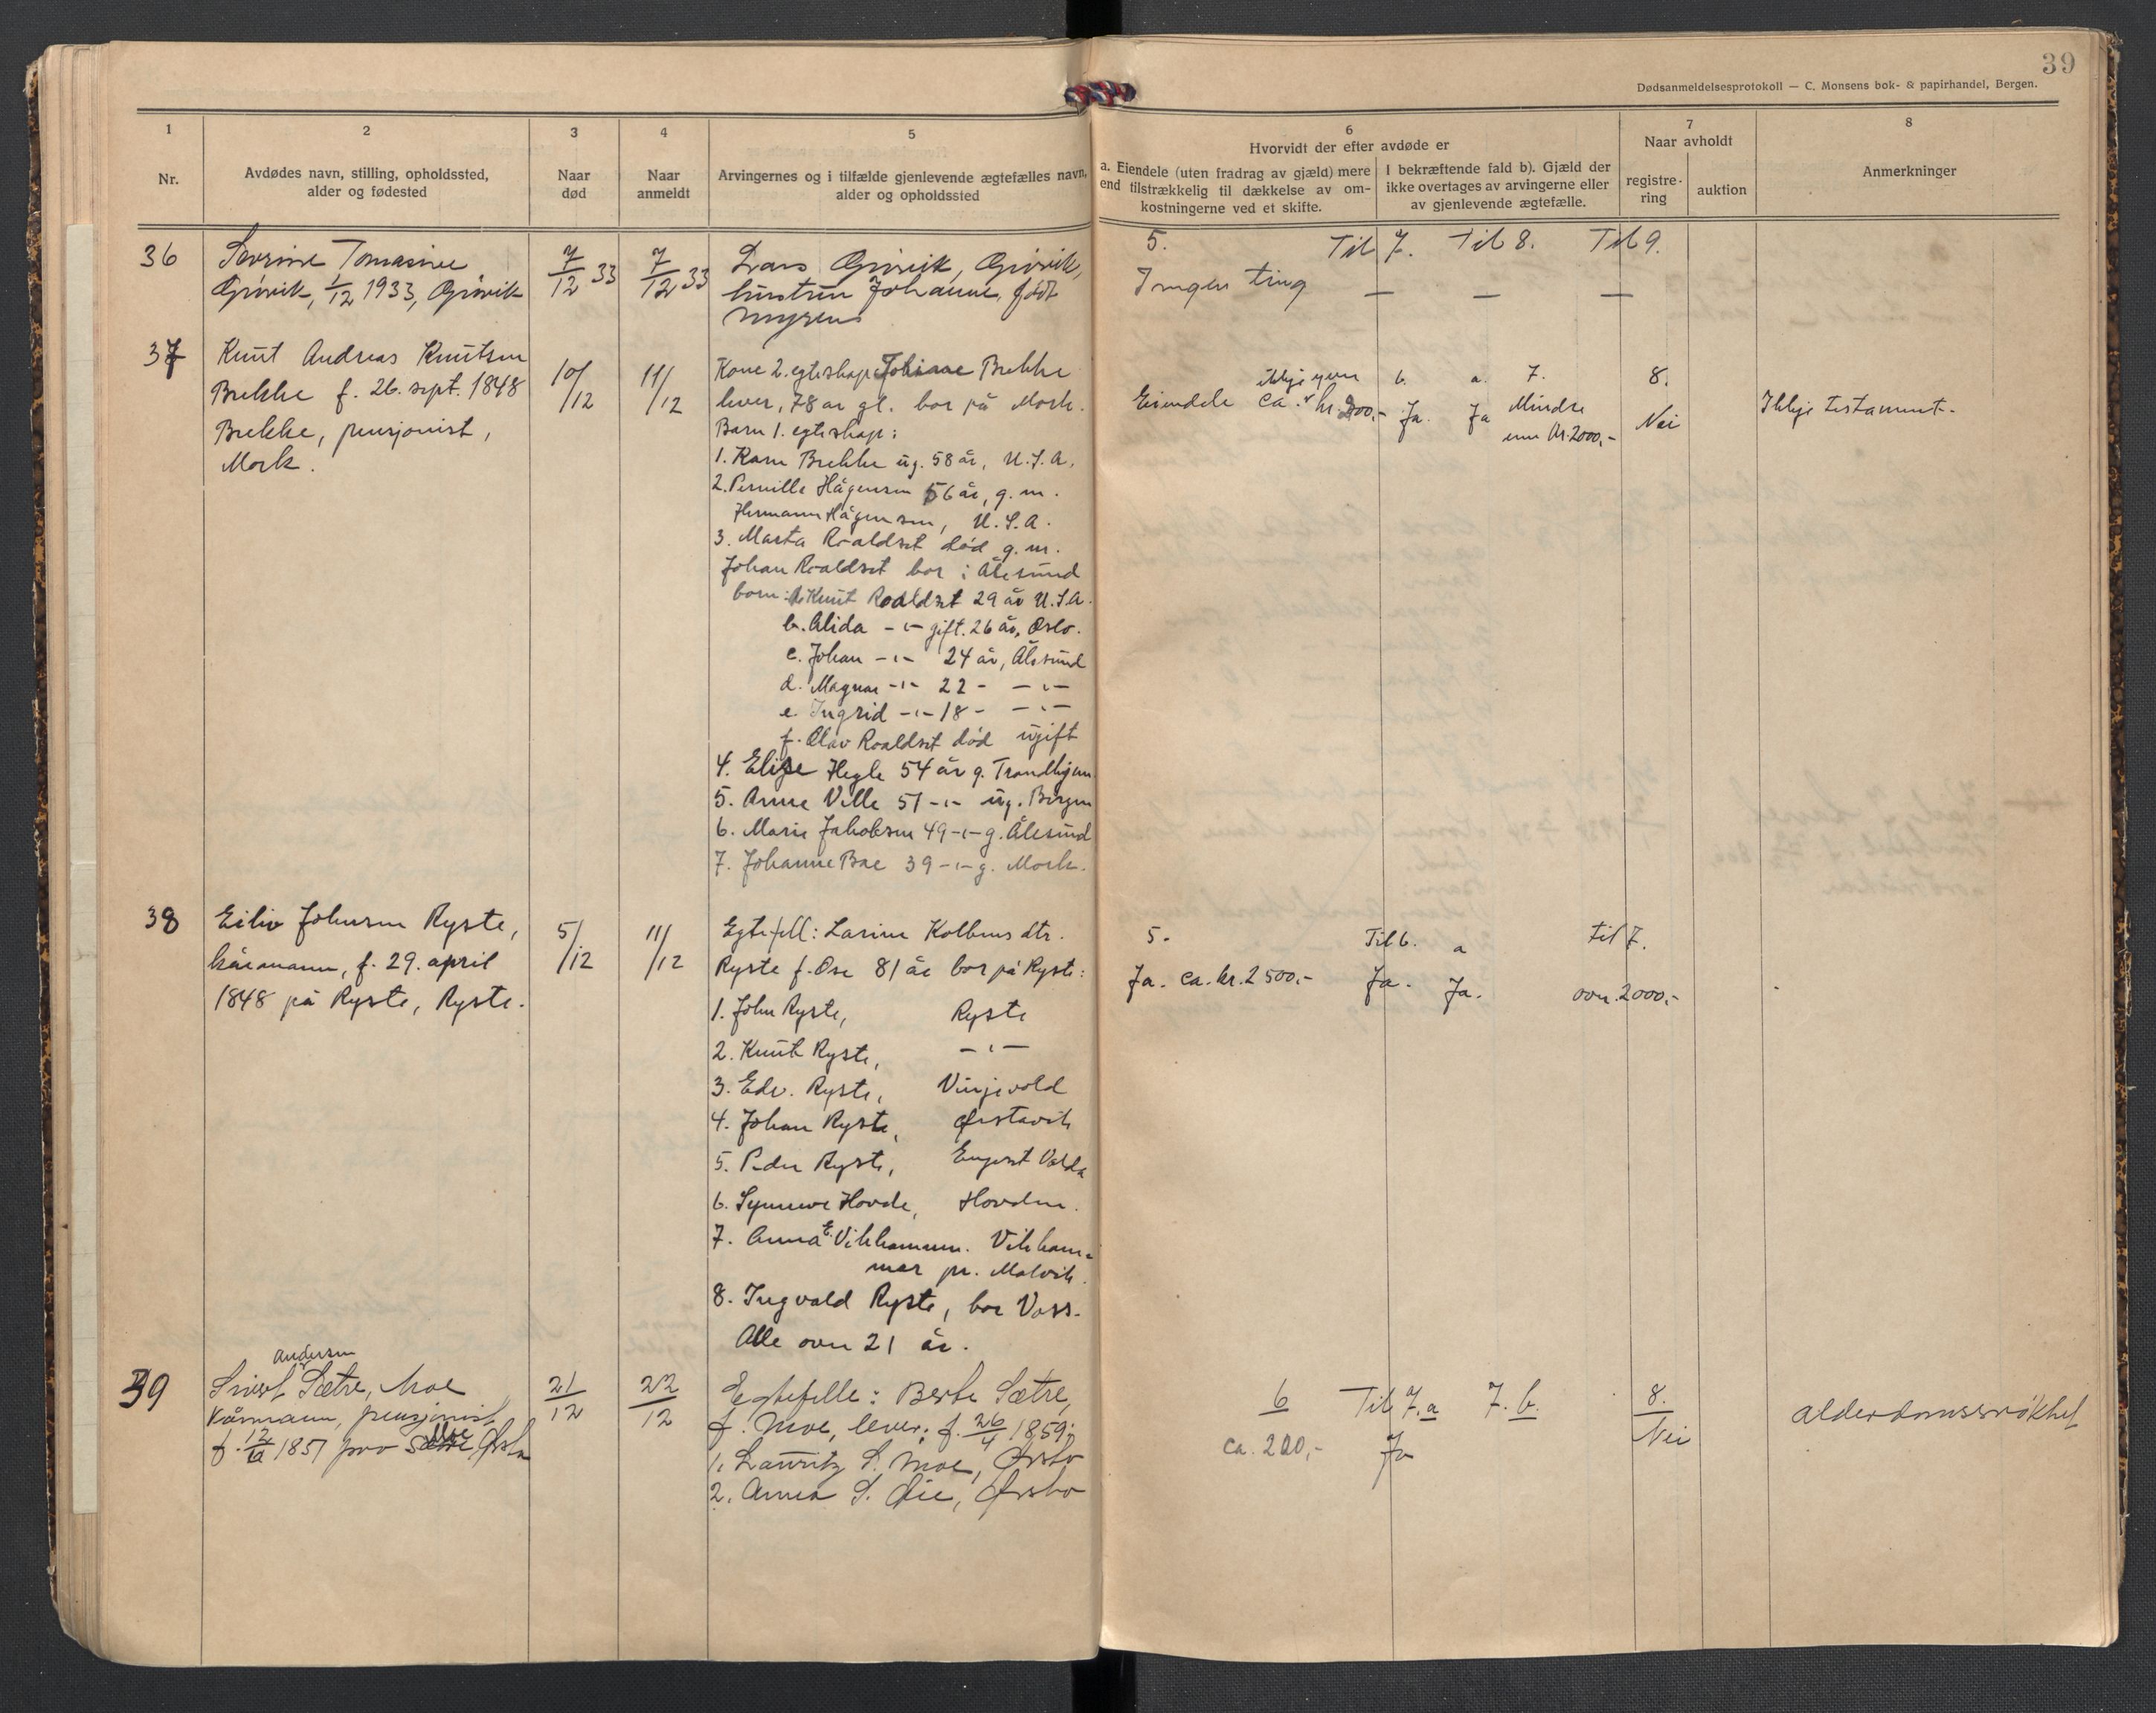 39
Dødsanmeldelsesprotokoll — C. Monsens bok- & papirhandel, Bergen.
1
Nr.
2
Avdødes navn, stilling, opholdssted,
alder og fødested
3
Naar
død
4
Naar
anmeldt
5
Arvingernes og i tilfælde gjenlevende ægtefælles navn,
alder og opholdssted
6
Hvorvidt der efter avdøde er
a. Eiendele (uten fradrag av gjæld) mere
end tilstrækkelig til dækkelse av om-
kostningerne ved et skifte.
I bekræftende fald b). Gjæld der
ikke overtages av arvingerne eller
av gjenlevende ægtefælle.
7
Naar avholdt
registre-
ring
auktion
8
Anmerkninger
36
Severine Tomasine
Grøvik, 1/12 1933, Grøvik
7/12 33
7/12 33
Lars Grøvik, Grøvik,
hustru Johanne, født
Myrene
5. Til 7. Til 8. Til 9.
Ingen ting — — —
37
Knut Andreas Knutsen
Brekke f. 26. sept. 1848
Brekke, pensjonist,
Mork.
10/12
11/12
Kone 2. egteskap: Johane Brekke
lever, 78 år gl. bor på Mork.
Barn 1. egteskap:
1. Rasm Brekke ug. 58 år, U.S.A.
2. Pernille Hågensen 56 år, g. m.
Hermann Hågensen, U.S.A.
3. Marta Roaldset død g. m.
Johan Roaldset bor i Ålesund
born: a. Knut Roaldset 29 år U.S.A.
b. Alida -"- gift. 26 år, Oslo.
c. Johan -"- 24 år, Ålesund
d. Magnar -"- 22 - -"-
e. Ingrid -"- 18 - -"-
f. Olav Roaldset død ugift
4. Elise Hegle 54 år g. Trondhjem
5. Anna Velle 51 -"- ug. Bergen
6. Marie Jakobsen 49 -"- g. Ålesund
7. Johanne Bae 39 -"- g. Mork.
ikkje yver 6. a. 7. 8.
Eiendele ca. kr. 200,- Ja. Ja Mindre Nei
enn kr. 2000,-
Ikkje testament.
38
Eiliv Johnsen Ryste,
kårmann, f. 29. april
1848 på Ryste, Ryste.
5/12
11/12
Egtefell: Larine Kolbens dtr.
Ryste f. Ose 81 år bor på Ryste:
1. John Ryste, Ryste
2. Knut Ryste, -"-
3. Edv. Ryste, Vinjevold
4. Johan Ryste, Ørstavik
5. Peder Ryste, Engeset Volda
6. Synnøve Hovde, Hovden.
7. Anna E. Vikhammer. Vikham-
mer pr. Malvik.
8. Ingvald Ryste, bor Voss.
Alle over 21 år.
5. Til 6. a til 7.
Ja. ca. kr. 2500,- Ja. Ja. over 2000,-
39
Andersen
Sivert Sætre, Moe
Kårmann, pensjonist
f. 12/6 1851 på Moe Ørsta
21/12
22/12
Egtefelle: Berte Sætre,
f. Moe, lever: f. 26/4 1859:
1. Lauritz S. Moe, Ørsta
2. Anna S. Øie, Ørsta
6 Til 7. a 7. b. 8.
ca. 220,- Ja Nei